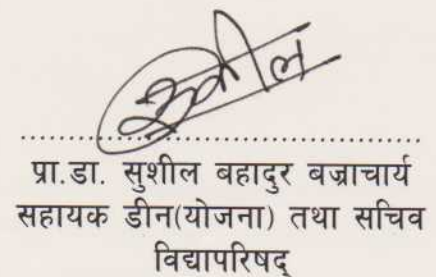 सुशील
.......................................................
प्रा.डा. सुशील बहादुर बज्राचार्य
सहायक डीन(योजना) तथा सचिव
विद्यापरिषद्